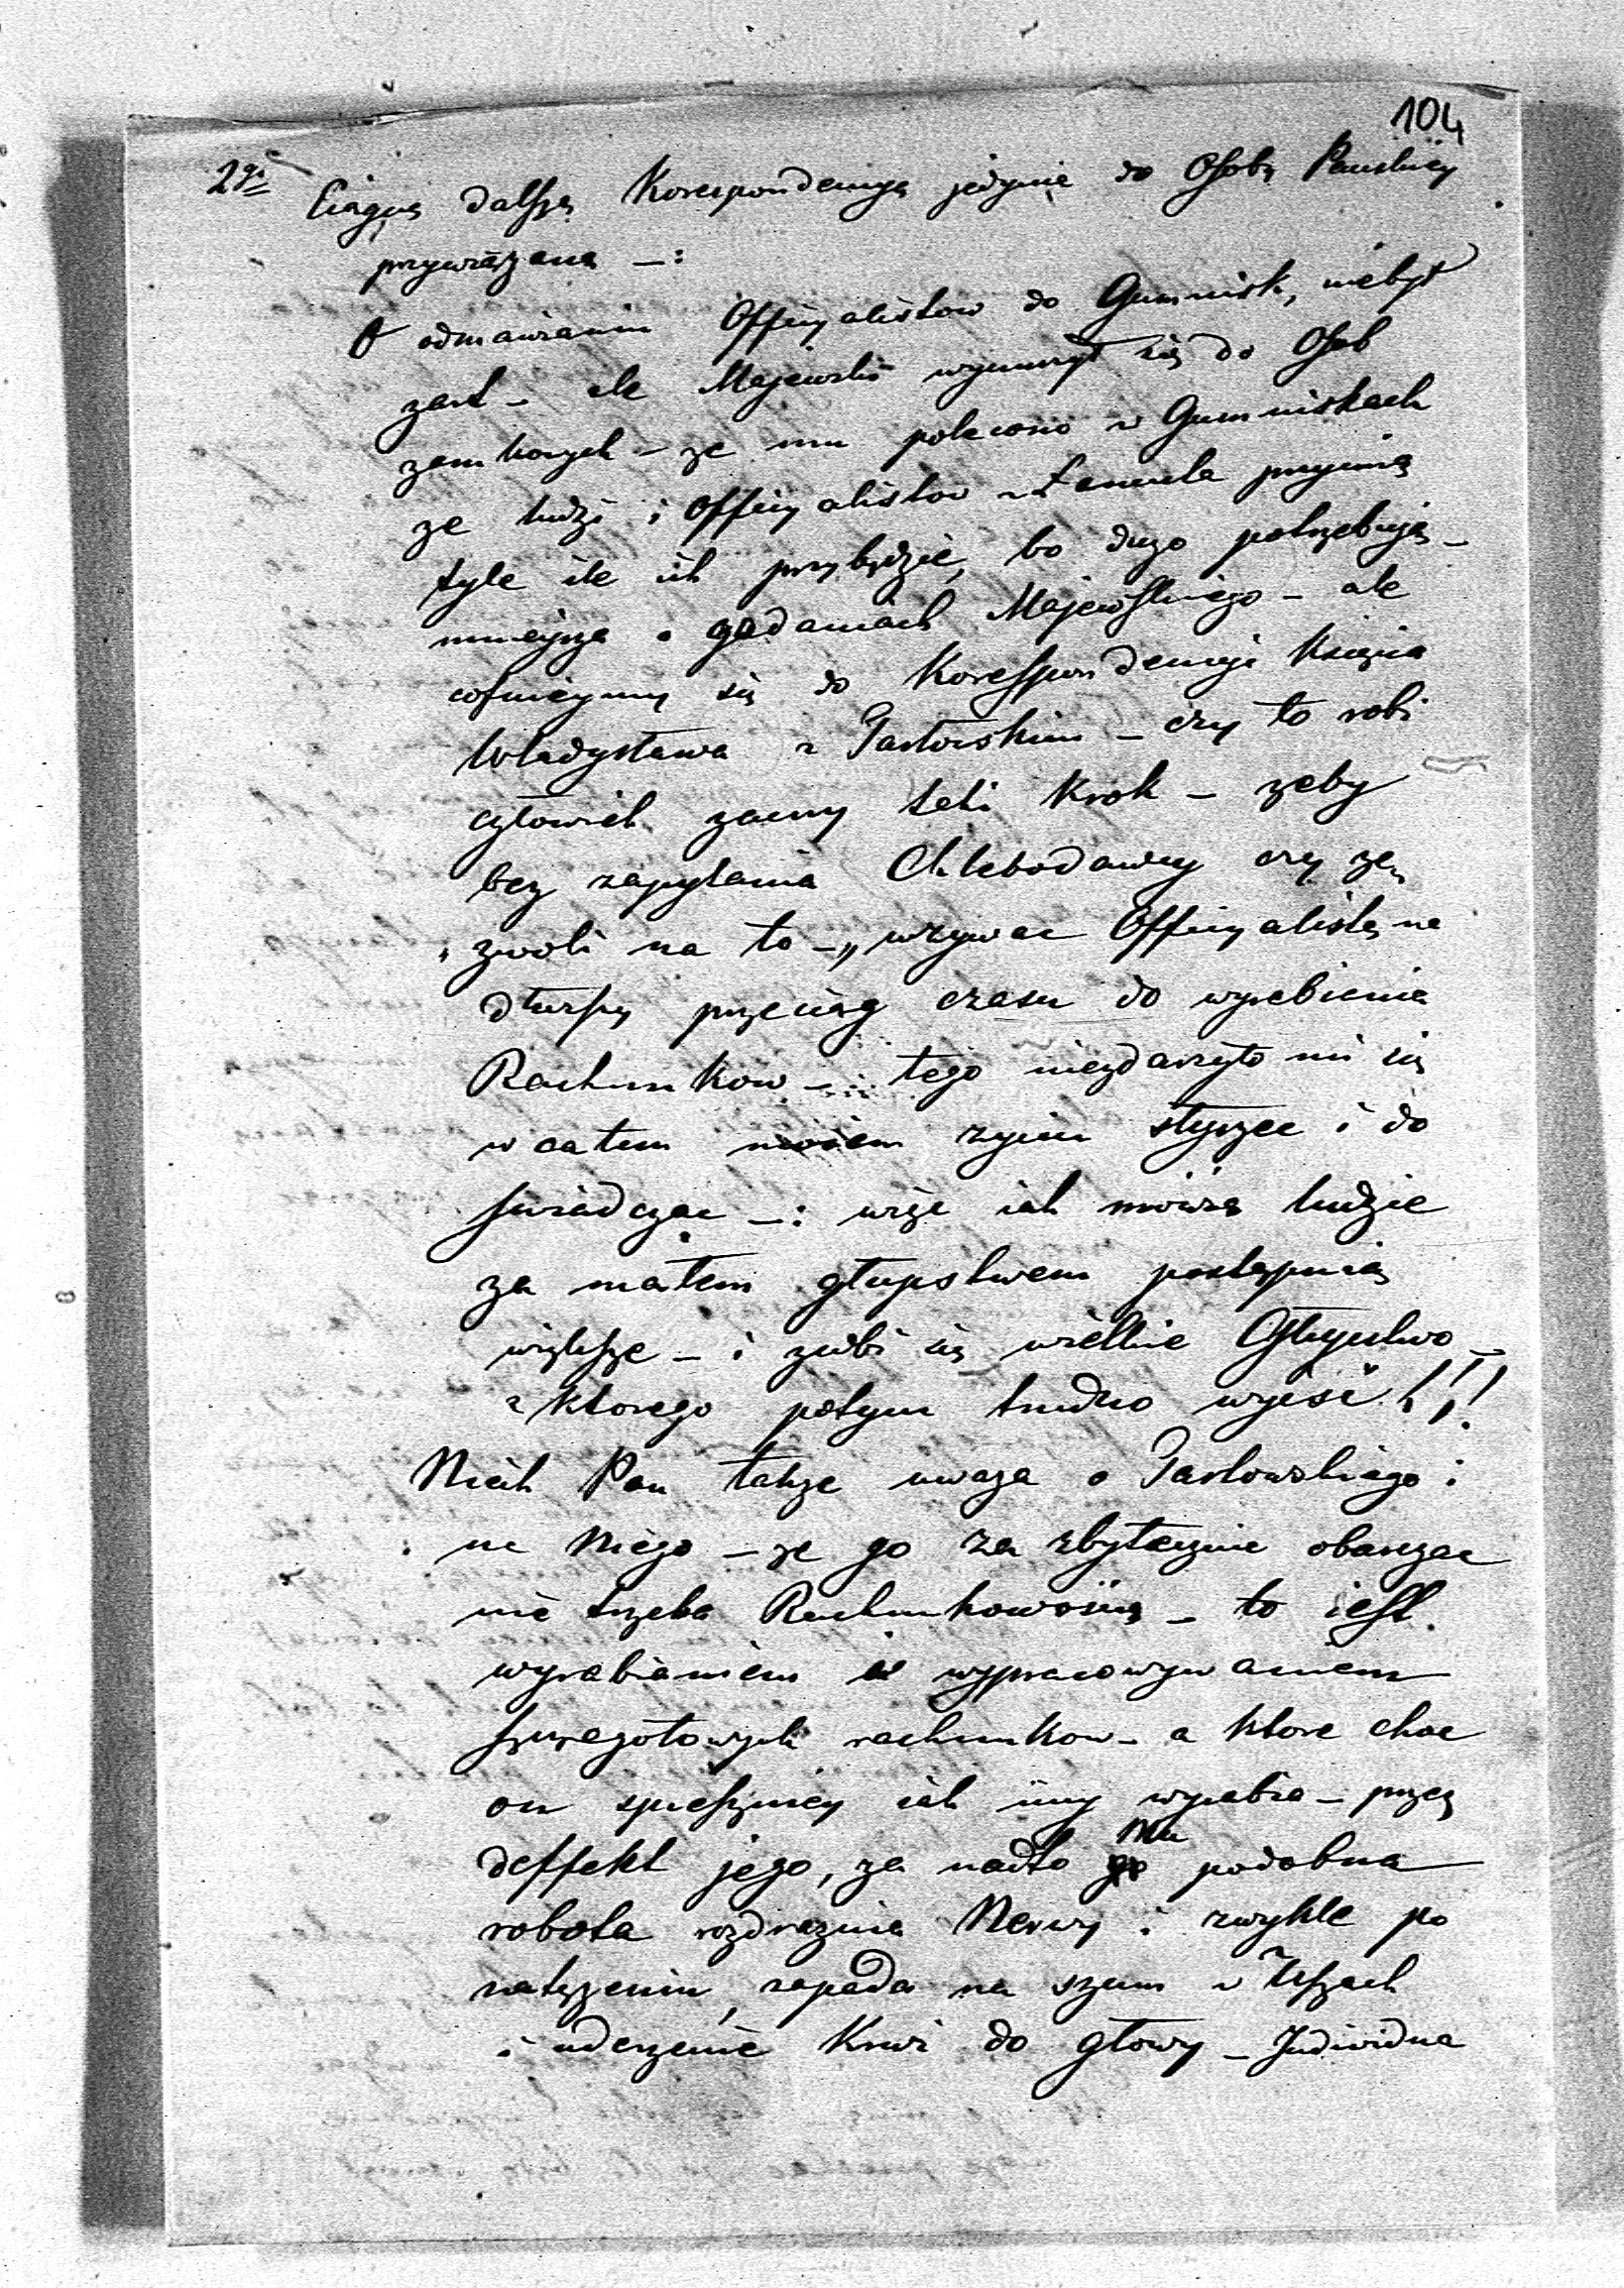 104
2go Ciągnę dalszą Korespondencyą jedynie do Osoby Pańskiey
przywiązaną —:
O odmawianiu Officyalistow do Gumnisk, niebył
zart — ale Majewski wynurzył się do Osob
zamkowych — ze mu polecono w Gumniskach
ze ludzi i Officyalistow z Łancuta przyimą
tyle ile ich przybędzie, bo duzo potrzebują —
mnieysza o gadaniach Majewskiego — ale
cofnieymy się do Korespondencyi Księcia
Władysława z Pastowskim — czy to robi
człowiek zacny taki Krok — zeby
bez zapytania Chlebodawcy czy ze„
„zwoli na to —„ wzywac Officyalistę na
dłuzszy przeciąg czasu do wyrabiania
Rachunkow — tego niezdarzyło mi się
w całem mojem zyciu słyszec i do
swiadczac —: więc iak mówią ludzie
za małem głupstwem postąpnią
większe — i zrobi się wielkie Głupstwo —
z ktorego potym trudno wyiść!,!
Niech Pan takze uwaza o Pastowskiego i
na Niego — ze go za zbytecznie obarczac
nie trzeba Rachunkowością — to iest
wyrabianiem i wypracowywaniem
szczegołowych rachunkow — a ktore choc
on spieszniey iak inny wyrabia — przez
deffekt jego, za nadto Mu podobna
robota rozdraznia Nerwy i zwykle po
natęzeniu, zapada na szum w Uszach
i uderzenie Krwi do głowy — Individua